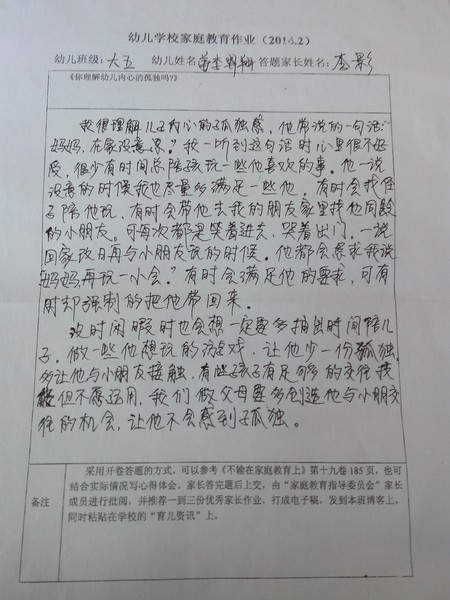 幼儿学校家庭教育作业（2014.2）
幼儿班级：大五 幼儿姓名 答题家长姓名：李影
《你理解幼儿内心的孤独吗？》
我很理解儿子内心的孤独感，他常说的一句话：
"妈妈，在家没意思。"我一听到这句话时心里很不好
受，很少有时间总陪孩玩一些他喜欢的事。他一说
没意的时候我也尽量多满足一些他，有时会找住
子陪他玩，有时会带他去我的朋友家里找他同龄
的小朋友。可每次都是笑着进去，哭着出门。一说
回家改日再与小朋友玩的时候。他都会恳求我说
"妈妈再玩一小会。"有时会满足他的要求，可有
时却强制的把他带回来。
没时闲暇时也会想一定要多抽出时间陪儿
子，做一些他想玩的游戏，让他少一份孤独，
多让他与小朋友接触，有些孩子有足够的交往
但不愿运用，我们做父母要多创造他与小朋交
往的机会，让他不会感到孤独。
备注
采用开卷答题的方式，可以参考《不输在家庭教育上》第十九卷185页，也可
结合实际情况写心得体会。家长答完题后上交，由"家庭教育指导委员会"家长
成员进行批阅，并推荐一到三份优秀家长作业，打成电子稿，发到本班博客上，
同时粘贴在学校的"育儿资讯"上。